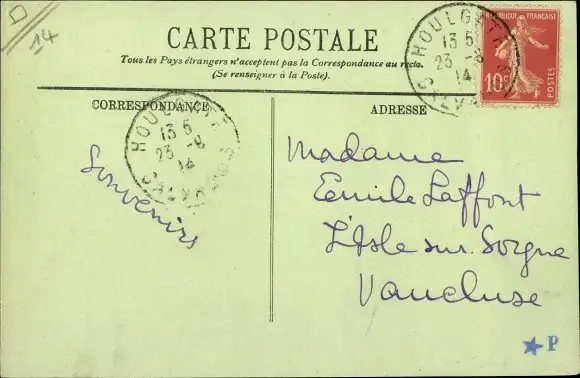 14
CARTE POSTALE
Tous les Pays étrangers n'acceptent pas la Correspondance au recto.
(Se renseigner à la Poste).
RÉPUBLIQUE FRANÇAISE
10c
POSTES
HOULGATE
13 5
23 -8
14
CALVADOS
CORRESPONDANCE
HOULGATE
13 5
23 -8
14
CALVADOS
Souvenirs
ADRESSE
Madame
Emile Laffont
L'Isle sur Sorgne
Vaucluse
P